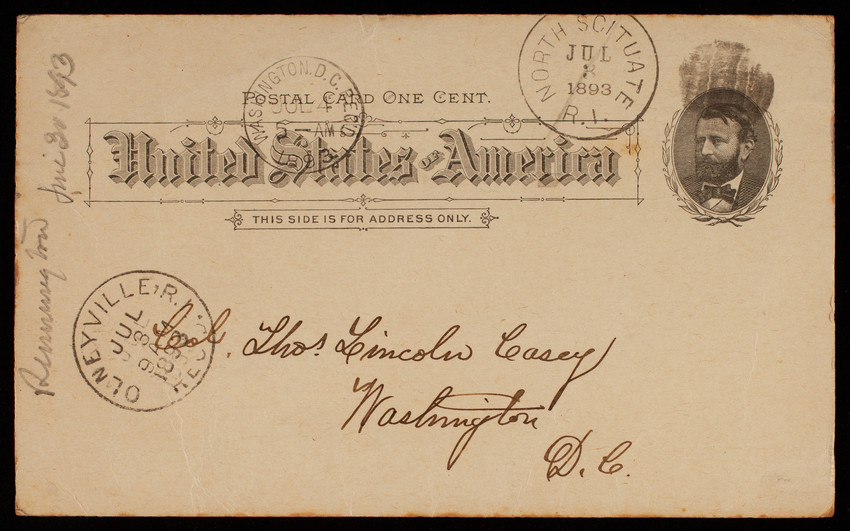 NORTH SCITUATE
JUL
3
1893
R.I.
WASHINGTON, D.C. REC'D
JUL 4
5 - AM
1893
POSTAL CARD ONE CENT.
United States of America
THIS SIDE IS FOR ADDRESS ONLY.
OLNEYVILLE, R.I. REC'D.
JUL
1893
Col. Thos. Lincoln Casey
Washington
D.C.
Remington
1893